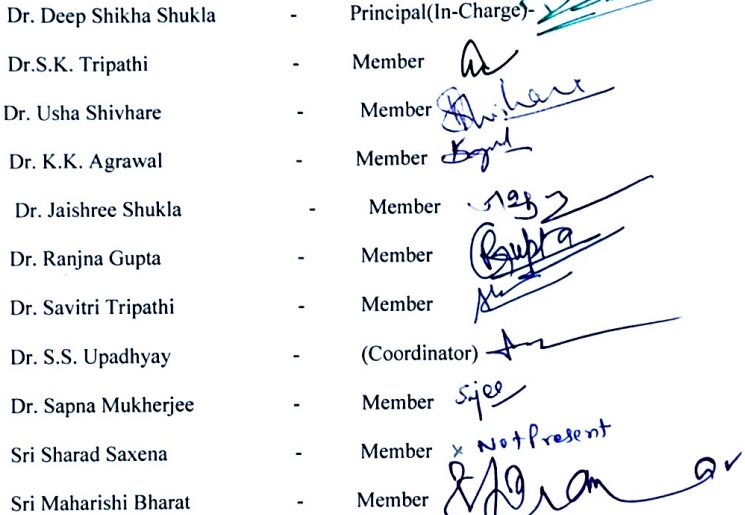 Dr. Deep Shikha Shukla - Principal(In-Charge)-
Dr.S.K. Tripathi - Member
Dr. Usha Shivhare - Member
Dr. K.K. Agrawal - Member
Dr. Jaishree Shukla - Member
Dr. Ranjna Gupta - Member Gupta
Dr. Savitri Tripathi - Member
Dr. S.S. Upadhyay - (Coordinator)
Dr. Sapna Mukherjee - Member
Sri Sharad Saxena - Member x Not Present
Sri Maharishi Bharat - Member